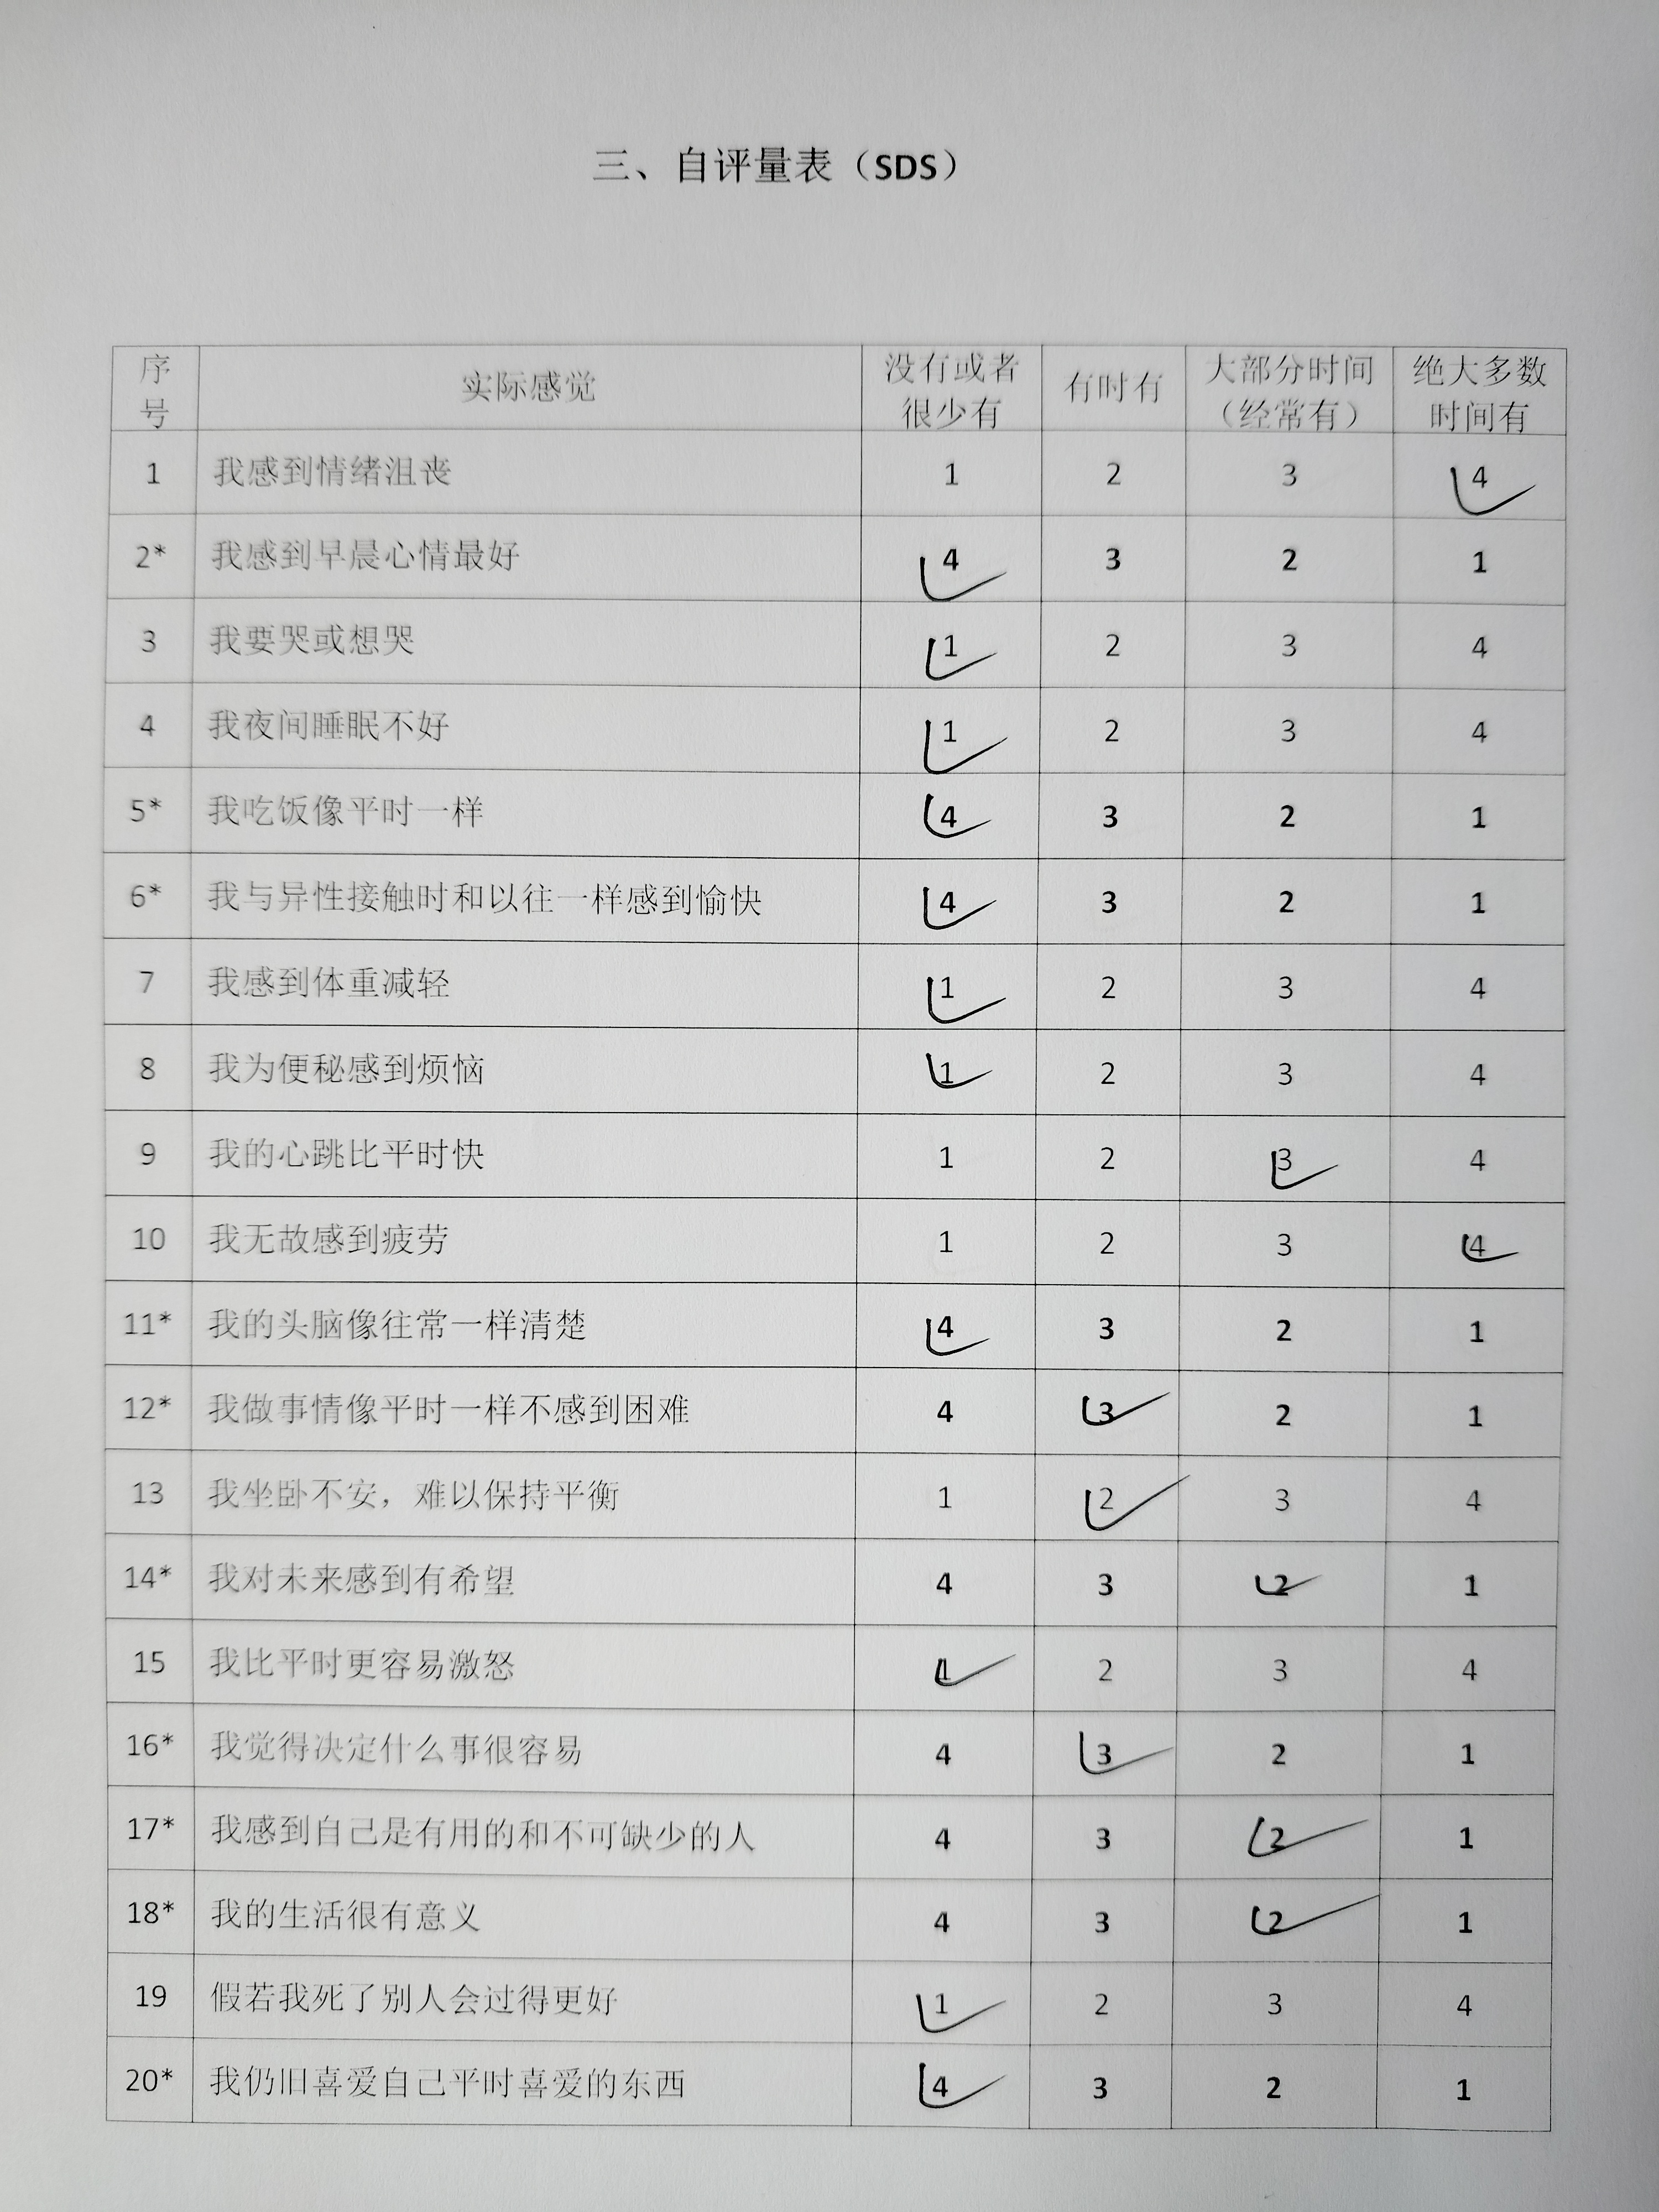 三、自评量表（SDS）
序号 实际感觉 没有或者很少有 有时有 大部分时间（经常有） 绝大多数时间有
1 我感到情绪沮丧 1 2 3 4
2* 我感到早晨心情最好 4 3 2 1
3 我要哭或想哭 1 2 3 4
4 我夜间睡眠不好 1 2 3 4
5* 我吃饭像平时一样 4 3 2 1
6* 我与异性接触时和以往一样感到愉快 4 3 2 1
7 我感到体重减轻 1 2 3 4
8 我为便秘感到烦恼 1 2 3 4
9 我的心跳比平时快 1 2 3 4
10 我无故感到疲劳 1 2 3 4
11* 我的头脑像往常一样清楚 4 3 2 1
12* 我做事情像平时一样不感到困难 4 3 2 1
13 我坐卧不安，难以保持平衡 1 2 3 4
14* 我对未来感到有希望 4 3 2 1
15 我比平时更容易激怒 1 2 3 4
16* 我觉得决定什么事很容易 4 3 2 1
17* 我感到自己是有用的和不可缺少的人 4 3 2 1
18* 我的生活很有意义 4 3 2 1
19 假若我死了别人会过得更好 1 2 3 4
20* 我仍旧喜爱自己平时喜爱的东西 4 3 2 1